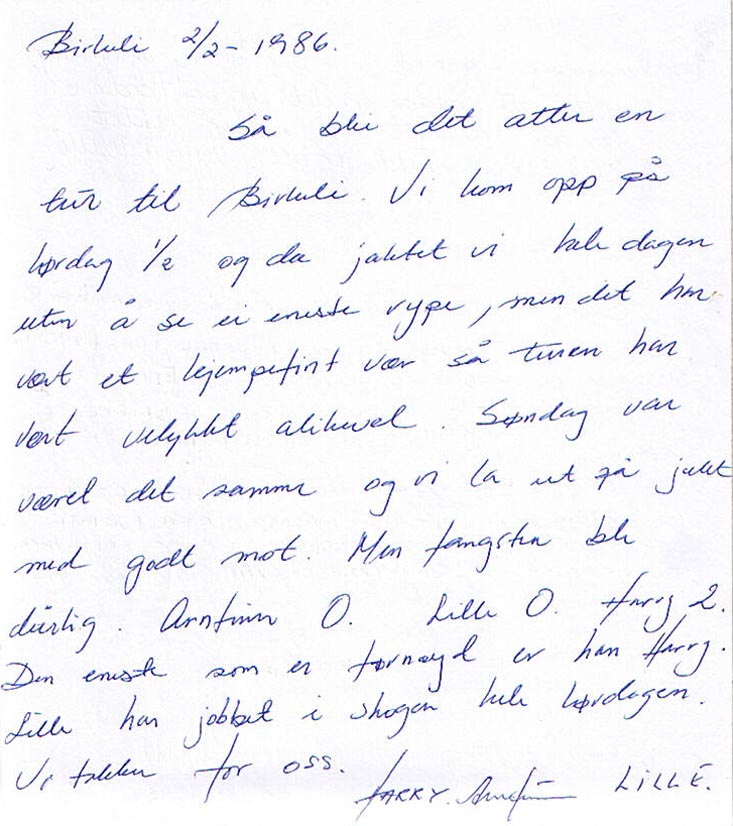 Birkeli 2/2 - 1986.
Så ble det atter en
tur til Birkeli. Vi kom opp på
lørdag 1/2 og da jaktet vi hele dagen
uten å se ei eneste rype, men det har
vært et kjempefint vær så turen har
vært velykket alikevel. Søndag var
været det samme og vi la ut på jakt
med godt mot. Men fangsten ble
dårlig. Arnfinn O. Lille O. Harry 2.
Den eneste som er fornøyd er han Harry.
Lille har jobbet i skogen hele lørdagen.
Vi takker for oss. HARRY. Arnfinn LILLE.